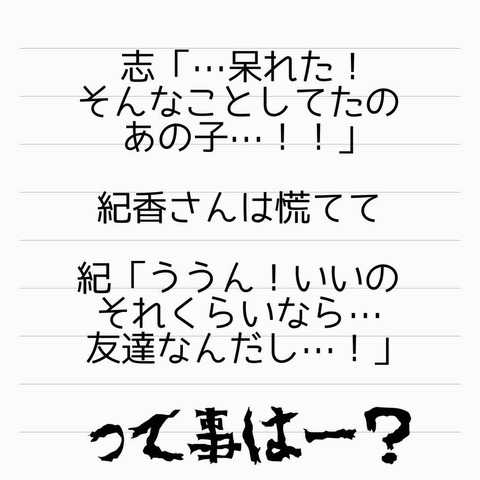 志「…呆れた！
そんなことしてたの
あの子…！！」
紀香さんは慌てて
紀「ううん！いいの
それくらいなら…
友達なんだし…！」
って事はー？